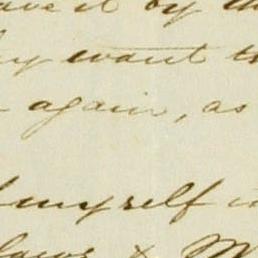 ave it by th
ey want th
again, as
myself i
laws & M